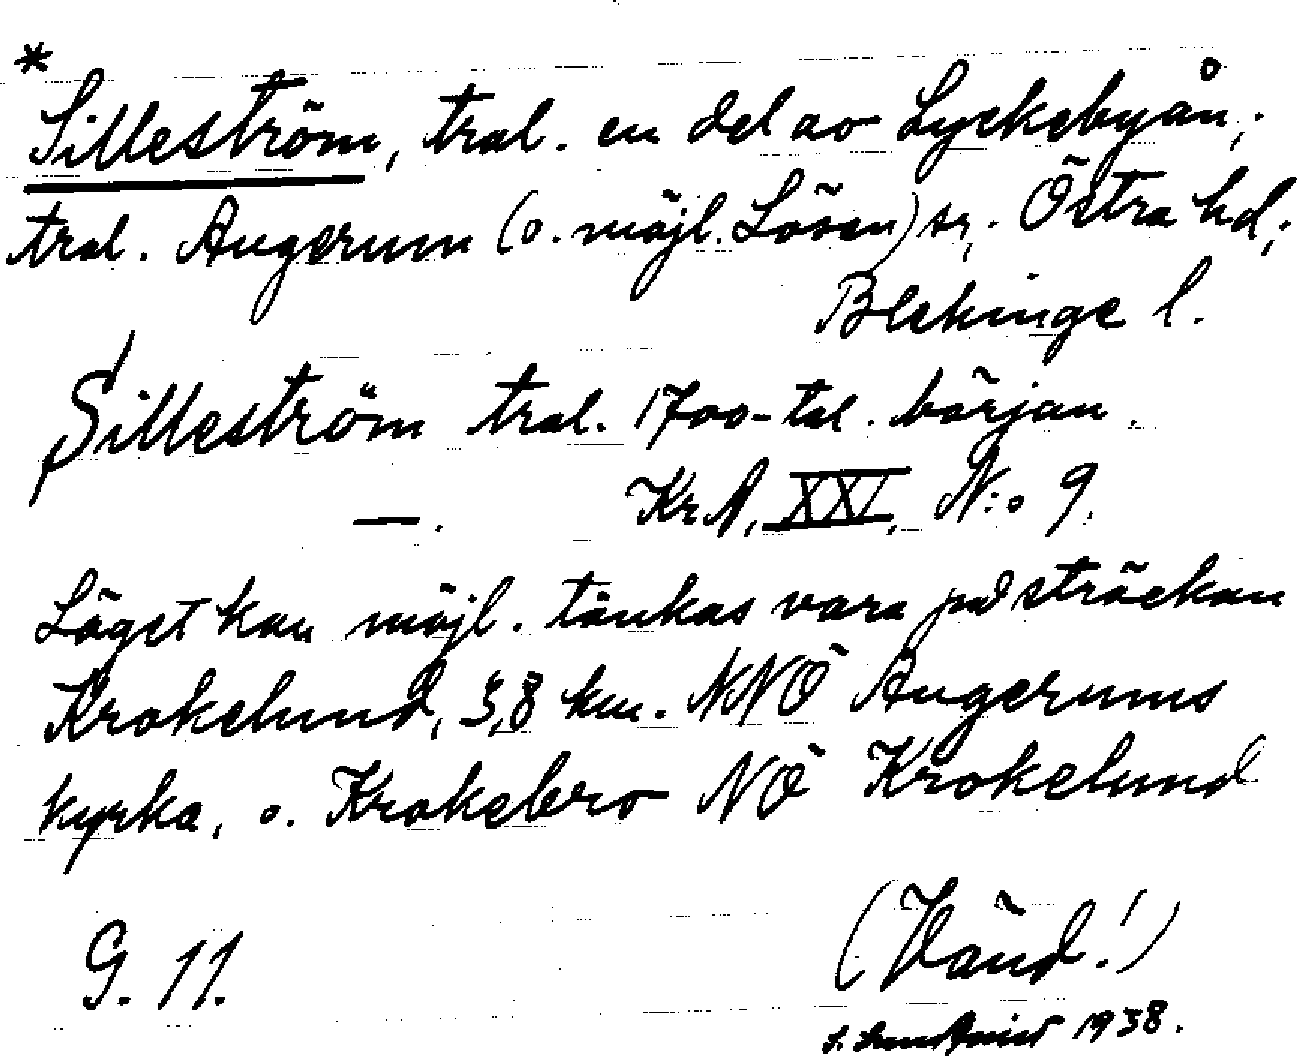 * Silleström, tral. en del av Lyckebyån;
tral. Augerum (o. möjl. Lösen) sn, Östra hd,
Blekinge l.
Silleström tral. 1700-tal. början.
—. KrA, XXI, N:o 9.
Läget kan möjl. tänkas vara på sträckan
Krokelund, 3,8 km. NNÖ Augerums
kyrka, o. Krokebro NÖ Krokelund
G. 11. (Vänd!)
1938.